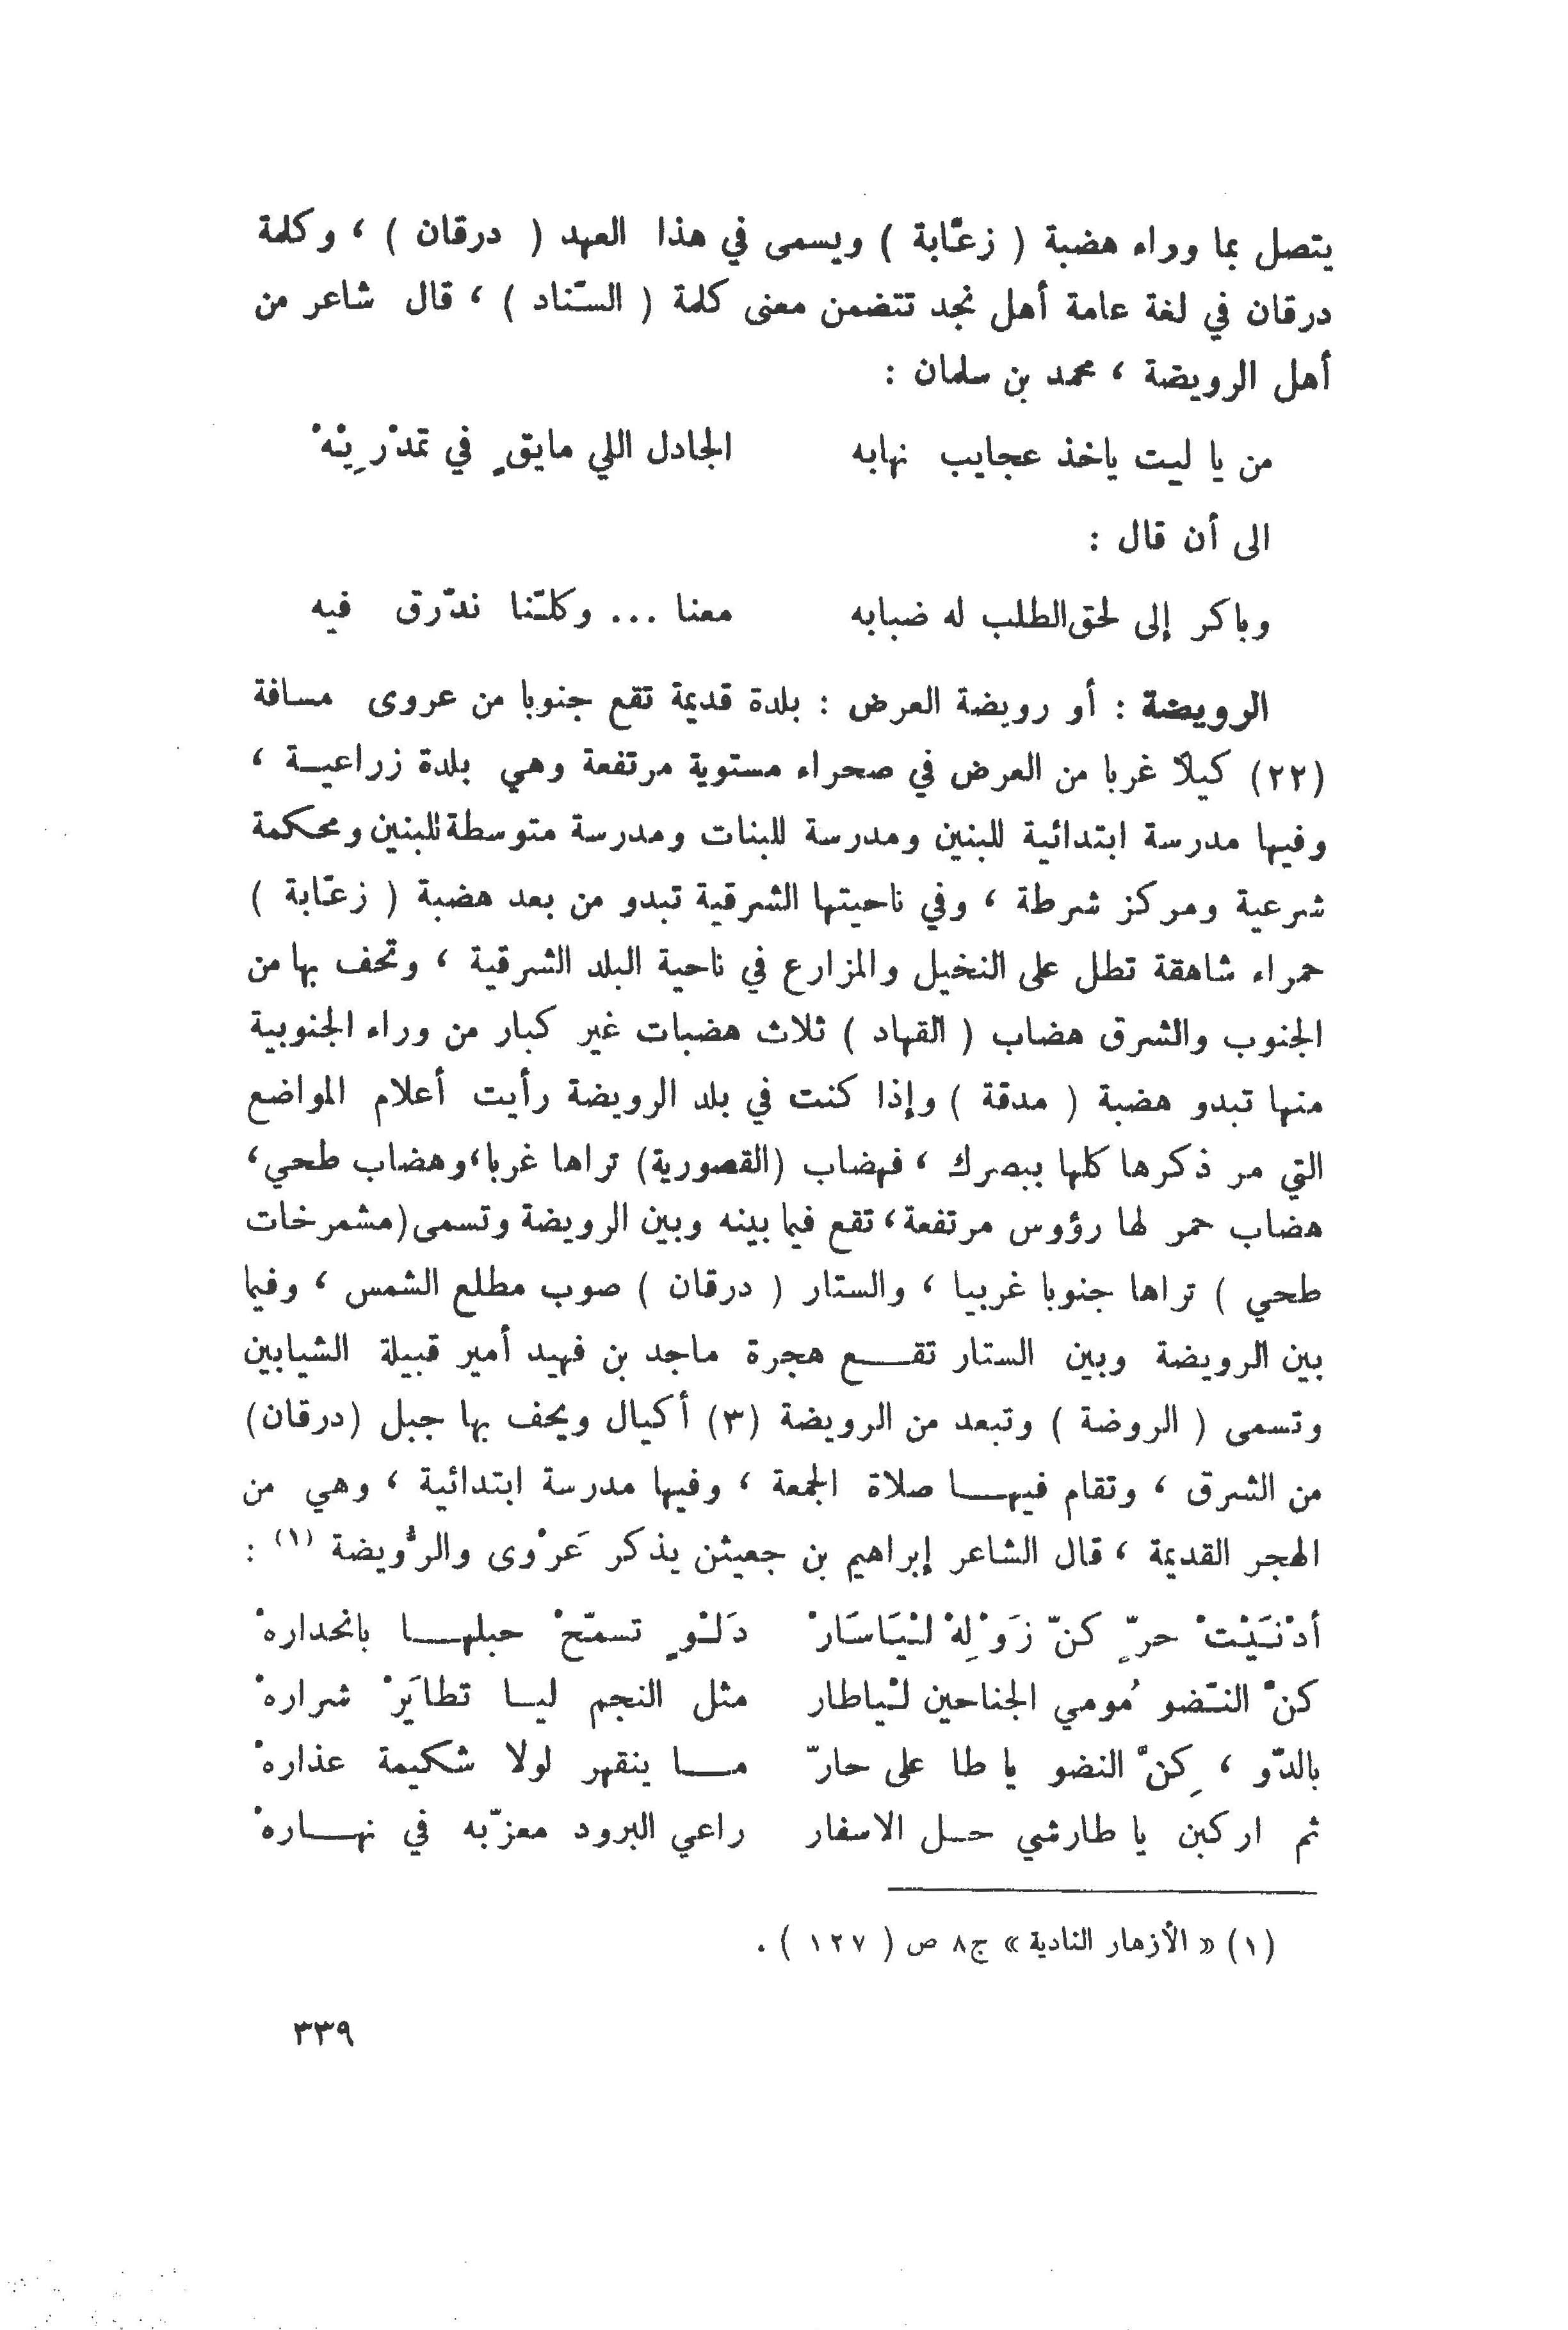 يتصل بما وراء هضبة ( زعّابة ) ويسمى في هذا العهد ( درقان ) ، وكلمة
درقان في لغة عامة أهل نجد تتضمن معنى كلمة ( السّناد ) ، قال شاعر من
أهل الرويضة ، محمد بن سلمان :
من يا ليت ياخذ عجايب نهابه الجادل اللي مايقٍ في تمدْرِيْهْ
الى أن قال :
وباكر إلى لحق الطلب له ضبابه معنا ... وكلّنا ندّرق فيه
الرويضة : أو رويضة العرض : بلدة قديمة تقع جنوبا من عروى مسافة
(٢٢) كيلاً غربا من العرض في صحراء مستوية مرتفعة وهي بلدة زراعيـة ،
وفيها مدرسة ابتدائية للبنين ومدرسة للبنات ومدرسة متوسطة للبنين ومحكمة
شرعية ومركز شرطة ، وفي ناحيتها الشرقية تبدو من بعد هضبة ( زعّابة )
حمراء شاهقة تطل على النخيل والمزارع في ناحية البلد الشرقية ، وتحف بها من
الجنوب والشرق هضاب ( القهاد ) ثلاث هضبات غير كبار من وراء الجنوبية
منها تبدو هضبة ( مدقة ) وإذا كنت في بلد الرويضة رأيت أعلام المواضع
التي مر ذكرها كلها ببصرك ، فهضاب (القصورية) تراها غربا، وهضاب طحي،
هضاب حمر لها رؤوس مرتفعة، تقع فيما بينه وبين الرويضة وتسمى (مشمرخات
طحي ) تراها جنوبا غربيا ، والستار ( درقان ) صوب مطلع الشمس ، وفيما
بين الرويضة وبين الستار تقـــع هجرة ماجد بن فهيد أمير قبيلة الشيابين
وتسمى ( الروضة ) وتبعد من الرويضة (٣) أكيال ويحف بها جبل (درقان)
من الشرق ، وتقام فيهـــا صلاة الجمعة ، وفيها مدرسة ابتدائية ، وهي من
الهجر القديمة ، قال الشاعر إبراهيم بن جعيثن يذكر عَرْوى والرُّويضة (١) :
أدْنَيْتْ حرٍّ كنّ زَوْلِهْ لْيَاسَارْ دَلْوٍ تسمّحْ حبلهـــا بانحدارهْ
كنّ النّضو مُومي الجناحين لْياطار مثل النجم ليـا تطايَرْ شرارهْ
بالدّو ، كِنّ النضو يا طا على حارّ مـــا ينقهر لولا شكيمة عذارهْ
ثم اركبن يا طارشي حـل الاسفار راعي البرود معزّبه في نهــارهْ
(١) « الأزهار النادية » ج٨ ص ( ١٢٧ ) .
٣٣٩